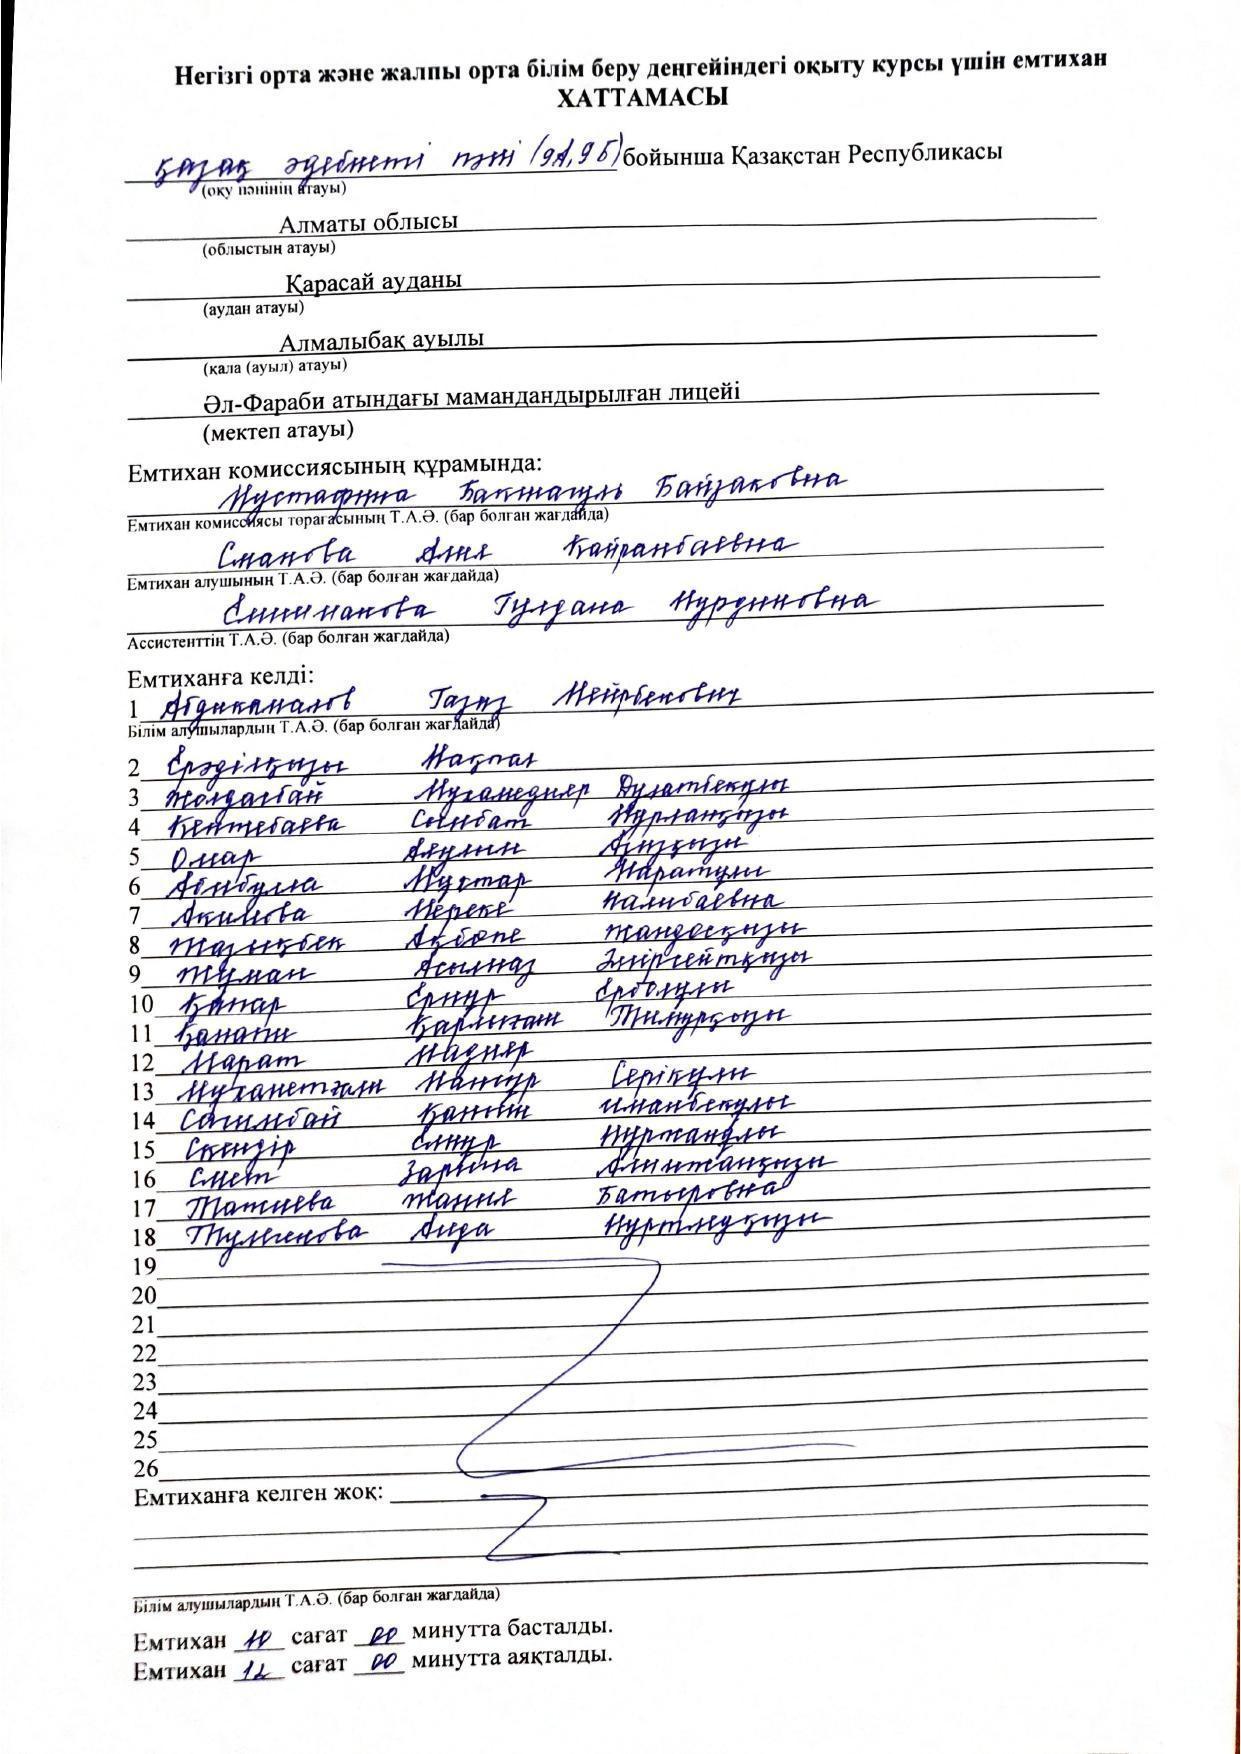 Негізгі орта және жалпы орта білім беру деңгейіндегі оқыту курсы үшін емтихан
ХАТТАМАСЫ
қазақ әдебиеті пәні (9А,9Б) бойынша Қазақстан Республикасы
(оқу пәнінің атауы)
Алматы облысы
(облыстың атауы)
Қарасай ауданы
(аудан атауы)
Алмалыбақ ауылы
(қала (ауыл) атауы)
Әл-Фараби атындағы мамандандырылған лицейі
(мектеп атауы)
Емтихан комиссиясының құрамында:
Мустафина Бакшагуль Байзаковна
Емтихан комиссиясы торағасының Т.А.Ә. (бар болған жағдайда)
Сманова Алия Кайранбаевна
Емтихан алушының Т.А.Ә. (бар болған жағдайда)
Гулдана Нурдиновна
Ассистенттің Т.А.Ә. (бар болған жағдайда)
Емтиханға келді:
1 Абдикамалов Газиз Мейрбекович
Білім алушылардың Т.А.Ә. (бар болған жағдайда)
2 Ерәділқызы Мақпал
3 Жолдасбай Мухамедияр Дулатбекұлы
4 Кентебаева Сымбат Нұрланқызы
5 Омар Аяулым Азизқызы
6 Абибулла Мұхтар Маратұлы
7 Акимова Мереке Малибаевна
8 Жазықбек Ақбөпе Жандосқызы
9 Жуман Асылназ Әмірсейтқызы
10 Қапар Ернұр Ерболұлы
11 Қанати Қарлығаш Тимурқызы
12 Марат Мадияр
13 Мұханетжан Мансұр Серікұлы
14 Сағымбай Қанат Иманбекұлы
15 Скендір Елнұр Нұржанұлы
16 Смет Зарина Алимжанқызы
17 Ташиева Жания Батыровна
18 Аида
19
20
21
22
23
24
25
26
Емтиханға келген жоқ:
Білім алушылардың Т.А.Ә. (бар болған жағдайда)
Емтихан 10 сағат 00 минутта басталды.
Емтихан 12 сағат 00 минутта аяқталды.